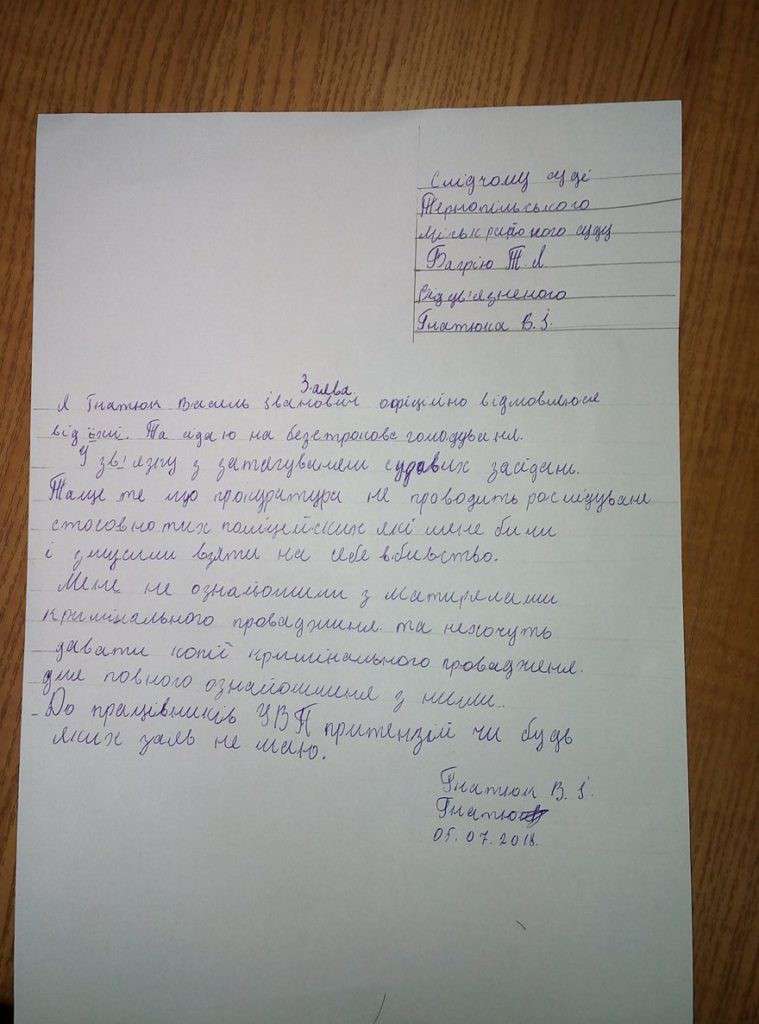 Слідчому судді
Тернопільського
Міськрайоного суду
Багрію Т.Я.
Від ув'язненого
Гнатюка В.І.
Заява
Я Гнатюк Василь Іванович офіційно відмовляюся
від їжі. Та сідаю на безстрокове голодування.
У зв'язку з затягуваням судових засідань.
Та ще те що прокуратура не проводить розслідуване
стосовно тих поліцейских які мене били
і змусили взяти на себе вбивство.
Мене не ознайомили з матирялами
кримінального проваджиня. та нехочуть
давати копії кримінального провадженя.
для повного ознайомшеня з ними.
До працівників УВП притензій чи будь
яких заль не маю.
Гнатюк В.І.
Гнатюк
05.07.2018.